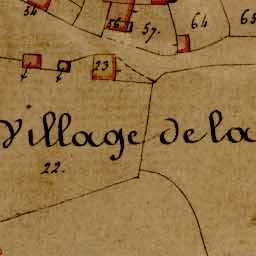 54
56
57.
64
65
23
Village de la
22.